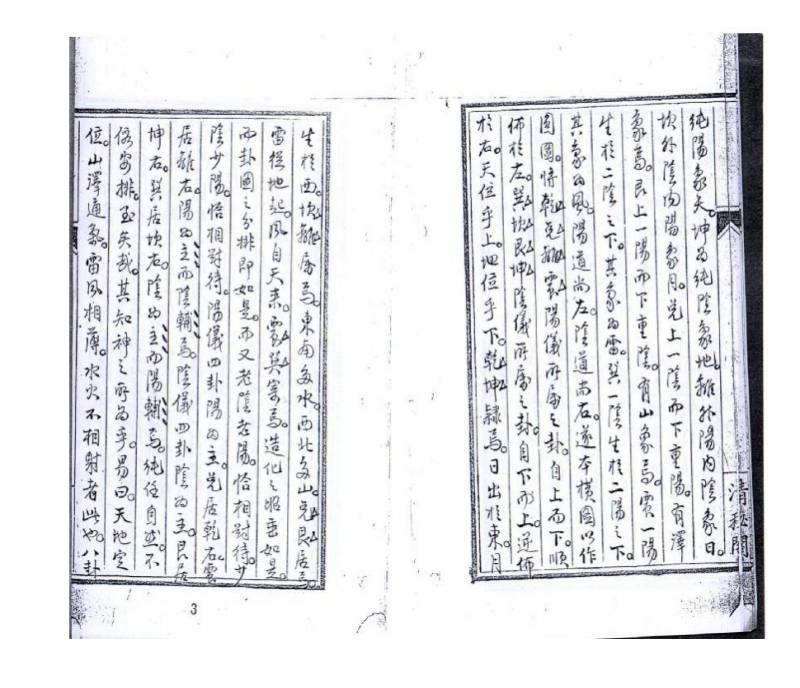 純陽象天坤為純陰象地離外陽內陰象日。
坎外陰內陽象月。兌上一陰而下重陽。有澤
象焉。艮上一陽而下重陰。有山象焉。震一陽
生於二陰之下。其象為雷。巽一陰生於二陽之下。
其象為風。陽道尚左。陰道尚右。遂本橫圖以作
圓圖。將乾兌離震陽儀所屬之卦。自上而下。順
佈於左。巽坎艮坤陰儀所屬之卦。自下而上。逆佈
於右。天位乎上。地位乎下。乾坤隸焉。日出於東。月
清秘閣
生於西。坎離居焉。東南多水。西北多山。兌艮居焉。
雷從地起。風自天來。震巽寄焉。造化之昭垂如是。
而卦圖之分排即如是。而又老陰老陽。恰相對待。少
陰少陽。恰相對待。陽儀四卦陽為主。兌居乾右。震
居離右。陽為主而陰輔焉。陰儀四卦陰為主。艮居
坤右。巽居坎右。陰為主而陽輔焉。純任自然。不
假安排。至矣哉。其知神之所為乎。易曰。天地定
位。山澤通氣。雷風相薄。水火不相射者此也。八卦
3